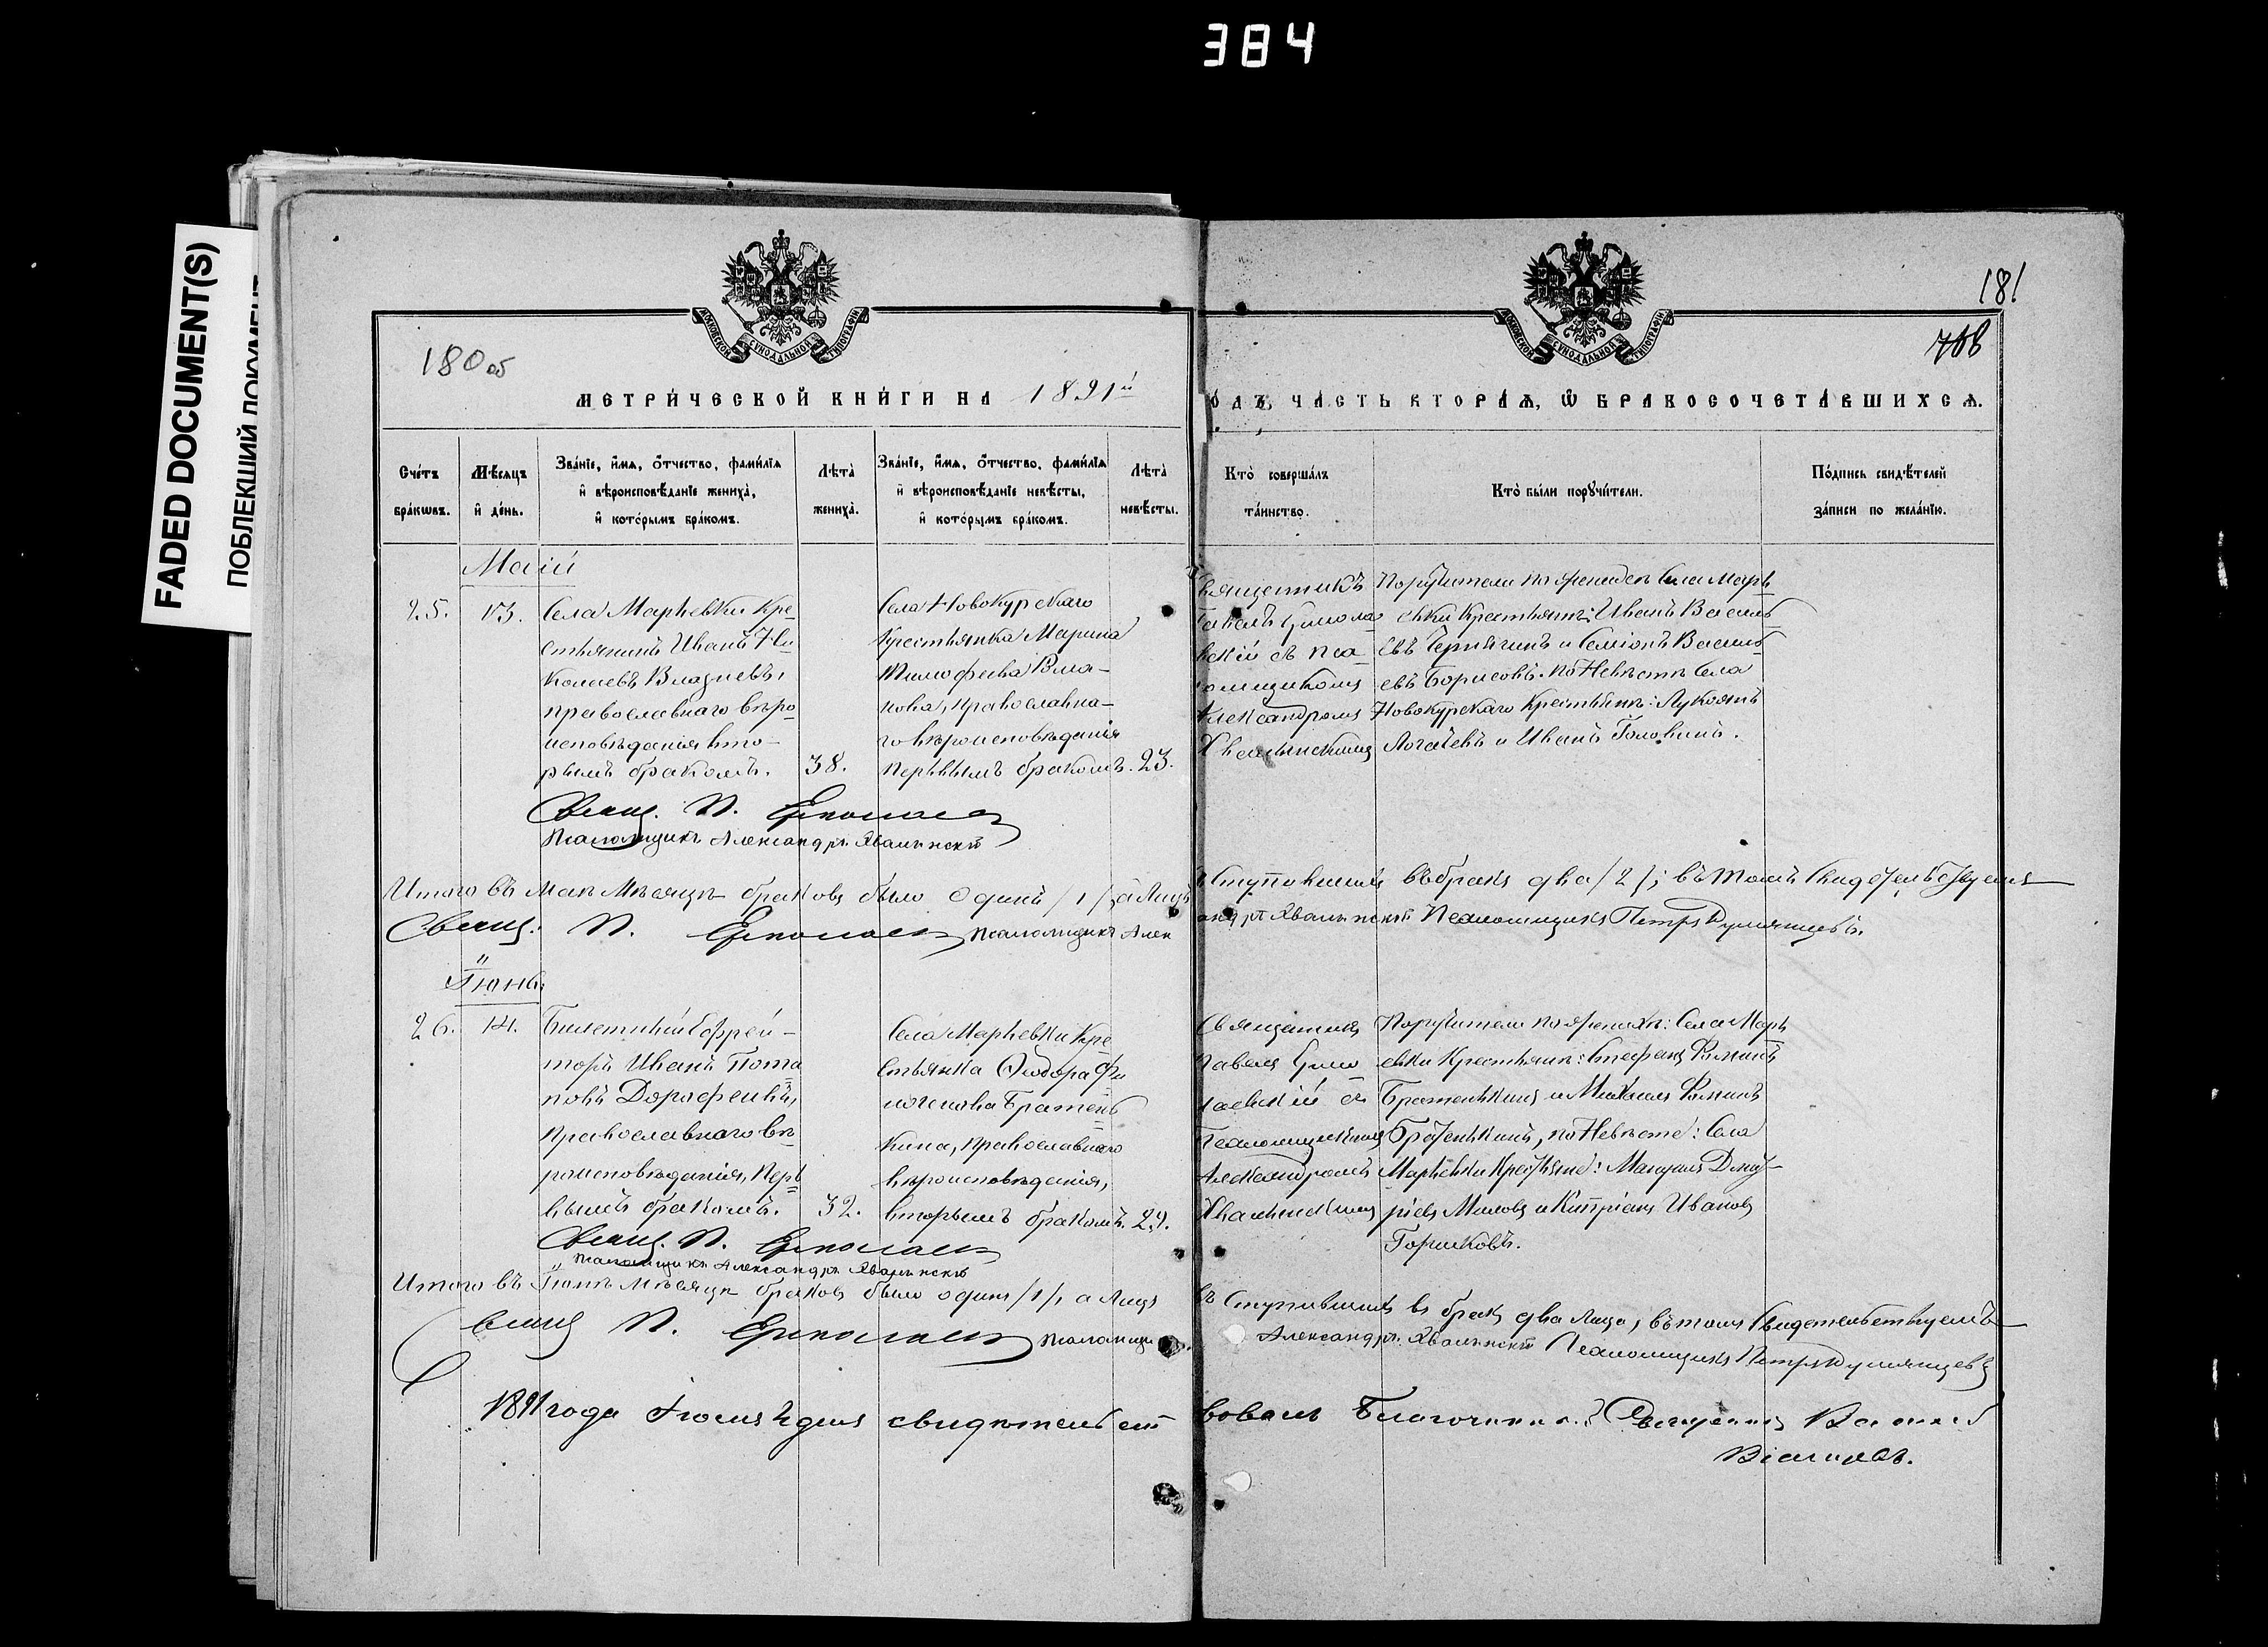 384
FADED DOCUMENT(S)
ПОБЛЕКШИЙ ДОКУМЕНТ
180 об
181
МОСКОВСКОЙ СУНОДАЛЬНОЙ ТИПОГРАФІИ
МОСКОВСКОЙ СУНОДАЛЬНОЙ ТИПОГРАФІИ
МЕТРИ́ЧЕСКОЙ КНИ́ГИ НА 1891й
ОДЪ, ЧА́СТЬ ВТОРА́Ѧ, Ѡ БРАКОСОЧЕТА́ВШИХСѦ.
Сче́тъ бра́кωвъ.
Мѣ́сѧцъ и҆ де́нь.
Зва́нїе, и҆́мѧ, ѻ҆́тчество, фами́лїѧ и҆ вѣроисповѣ́данїе жениха̀, и҆ кото́рымъ бра́комъ.
Лѣта̀ жениха̀.
Зва́нїе, и҆́мѧ, ѻ҆́тчество, фами́лїѧ и҆ вѣроисповѣ́данїе невѣ́сты, и҆ кото́рымъ бра́комъ.
Лѣта̀ невѣ́сты.
Кто̀ соверша́лъ та́инство.
Кто̀ бы́ли порꙋчи́тели.
По́дпись свидѣ́телей за́писи по жела́нїю.
Маій
25. 13.
Села Марьевки Кре
стьянинъ Иванъ Ни
колаевъ
православнаго вѣро
исповѣданія вто-
рымъ бракомъ. 38.
Села Новокурскаго
Крестьянка Марина
Тимофеева
православна-
го вѣроисповѣданія
первымъ бракомъ. 23.
Священникъ
Павелъ Ермола
евскій съ пса
ломщикомъ
Александромъ
Хвалынскимъ
Поручители по женихѣ Села Марь
евки Крестьяне: Иванъ Василь
евъ и Семіонъ Василь
евъ Борисовъ. по Невѣстѣ Села
Новокурскаго Крестьяне: Лукоянъ
и Иванъ Головинъ.
Свящ. П. Ермолаев
Псаломщикъ Александръ Хвалынскій
Итого въ Маѣ Мѣсяцѣ браковъ было одинъ /1/, а Лицъ
вступившихъ въ бракъ два /2/; въ томъ свидѣтельствуемъ
Свящ. П. Ермолаев Псаломщикъ Алек
андръ Хвалынскій Псаломщикъ Петръ Румянцевъ.
Іюнь
26. 14.
Билетный Ефрей-
торъ Иванъ Пота
повъ
Православнаго вѣ
роисповѣданія, Пер
вымъ бракомъ. 32.
Села Марьевки Кре
стьянка Ѳеодора Фи
Братень
кина, православнаго
вѣроисповѣданія,
вторымъ бракомъ. 29.
Священникъ
Павелъ Ермо
лаевскій съ
Псаломщикомъ
Александромъ
Хвалынскимъ
Поручители по женихѣ: Села Марь
евки Крестьяне: Стефанъ Фоминъ
Братенькинъ и Михаилъ Фоминъ
Братенькинъ, по Невѣстѣ: Села
Марьевки Крестьяне: Мануилъ Дмит-
ріевъ и Кипріанъ Ивановъ
Горшковъ.
Свящ. П. Ермолаев
Псаломщикъ Александръ Хвалынскій
Итого въ Іюнѣ Мѣсяцѣ браковъ было одинъ /1/, а Лицъ
въ ступившихъ въ бракъ два Лица, въ томъ свидѣтельствуемъ
Свящ. П. Ермолаев Псаломщик
Александръ Хвалынскій Псаломщикъ Петръ Румянцевъ
1891 года Іюля 2 дня свидѣтельст
вовалъ Благочинный Священникъ